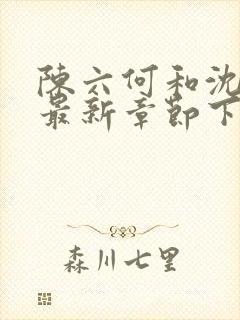 陳六何和沈
最新章節下
森川七里